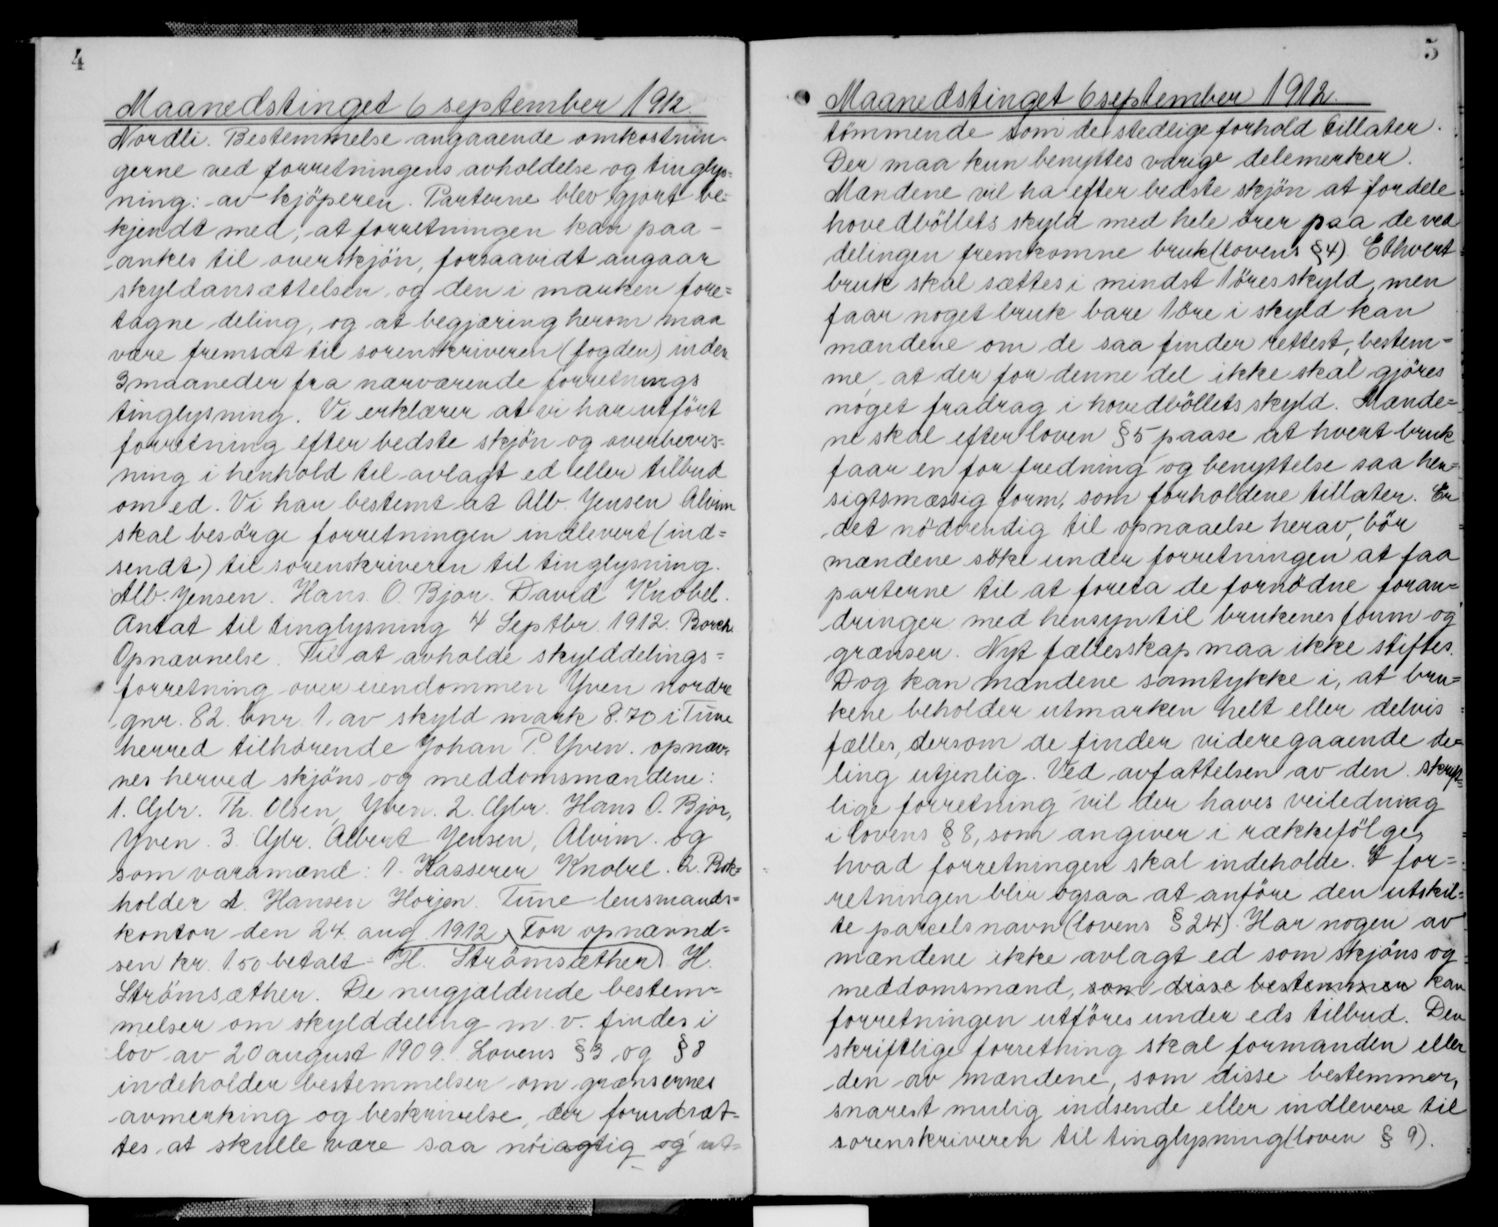 4
Maanedstinget 6 september 1912
Nordli. Bestemmelse angaaende omkostnin-
gerne ved forretningens avholdelse og tinglys-
ning: av kjöperen. Parterne blev gjort be-
kjendt med, at forretningen kan paa-
ankes til overskjön, forsaavidt angaar
skyldansættelsen og den i marken fore=
tagne deling, og at begjæring herom maa
være fremsat til sorenskriveren (fogden) inden
3 maaneder fra nærværende forretnings
tinglysning. Vi erklærer at vi har utfört
forretning efter bedste skjön og overbevis=
ning i henhold til avlagt ed eller tilbud
om ed. Vi har bestemt at Alb. Jensen Alvim
skal besörge forretningen indlevert (ind=
sendt) til sorenskriveren til tinglysning.
Alb. Jensen. Hans O. Bjor. David Knobel.
Antat til tinglysning 4 Septbr. 1912. Borch.
Opnævnelse. Til at avholde skylddelings=
forretning over eiendommen Yven nordre
gnr. 82. bnr. 1. av skyld mark 8.70 i Tune
herred tilhörende Johan P. Yven. opnæv-
nes herved skjöns og meddomsmændene:
1. Gbr. Th. Olsen, Yven. 2. Gbr. Hans O. Bjor,
Yven. 3. Gbr. Albert Jensen, Alvim. og
som varamænd: 1. Kasserer Knobel. 2. Bok=
holder A. Hansen Horjen. Tune lensmands=
kontor den 24. aug. 1912. For opnævnel=
sen kr. 1.50 betalt - H. Strömsæther. H.
Strömsæther. De nugjældende bestem=
melser om skylddeling m. v. findes i
lov av 20 august 1909. Lovens § 3 og § 8
indeholder bestemmelser om grænsernes
avmerking og beskrivelse, der forudsæt-
tes at skulle være saa nöiagtig og ut=
5
Maanedstinget 6 september 1912.
tömmende som de stedlige forhold tillater.
Der maa kun benyttes varige delemerker.
Mændene vil ha efter bedste skjön at fordele
hovedböllets skyld med hele örer paa de ved
delingen fremkomne bruk (lovens § 4). Ethvert
bruk skal sættes i mindst 1 öres skyld, men
faar noget bruk bare 1 öre i skyld kan
mændene om de saa finder rettest, bestem=
me, at der for denne del ikke skal gjöres
noget fradrag i hovedböllets skyld. Mænde=
ne skal efter loven § 5 paase at hvert bruk
faar en for fredning og benyttelse saa hen=
sigtsmæssig form, som forholdene tillater. Er
det nödvendig til opnaaelse herav, bör
mændene söke under forretningen at faa
parterne til at foreta de fornödne foran=
dringer med hensyn til brukenes form og
grænser. Nyt fællesskap maa ikke stiftes.
Dog kan mændene samtykke i, at bru=
kene beholder utmarken helt eller delvis
fælles, dersom de finder videregaaende de=
ling utjenlig. Ved avfattelsen av den skrift=
lige forretning vil der haves veiledning
i lovens § 8, som angiver i rækkefölge,
hvad forretningen skal indeholde. I for=
retningen blir ogsaa at anföre den utskil=
te parcels navn (lovens § 24). Har nogen av
mændene ikke avlagt ed som skjöns og
meddomsmænd, som disse bestemmer kan
forretningen utföres under eds tilbud. Den
skriftlige forretning skal formanden eller
den av mændene, som disse bestemmer,
snarest mulig indsende eller indlevere til
sorenskriveren til tinglysning (loven § 9).